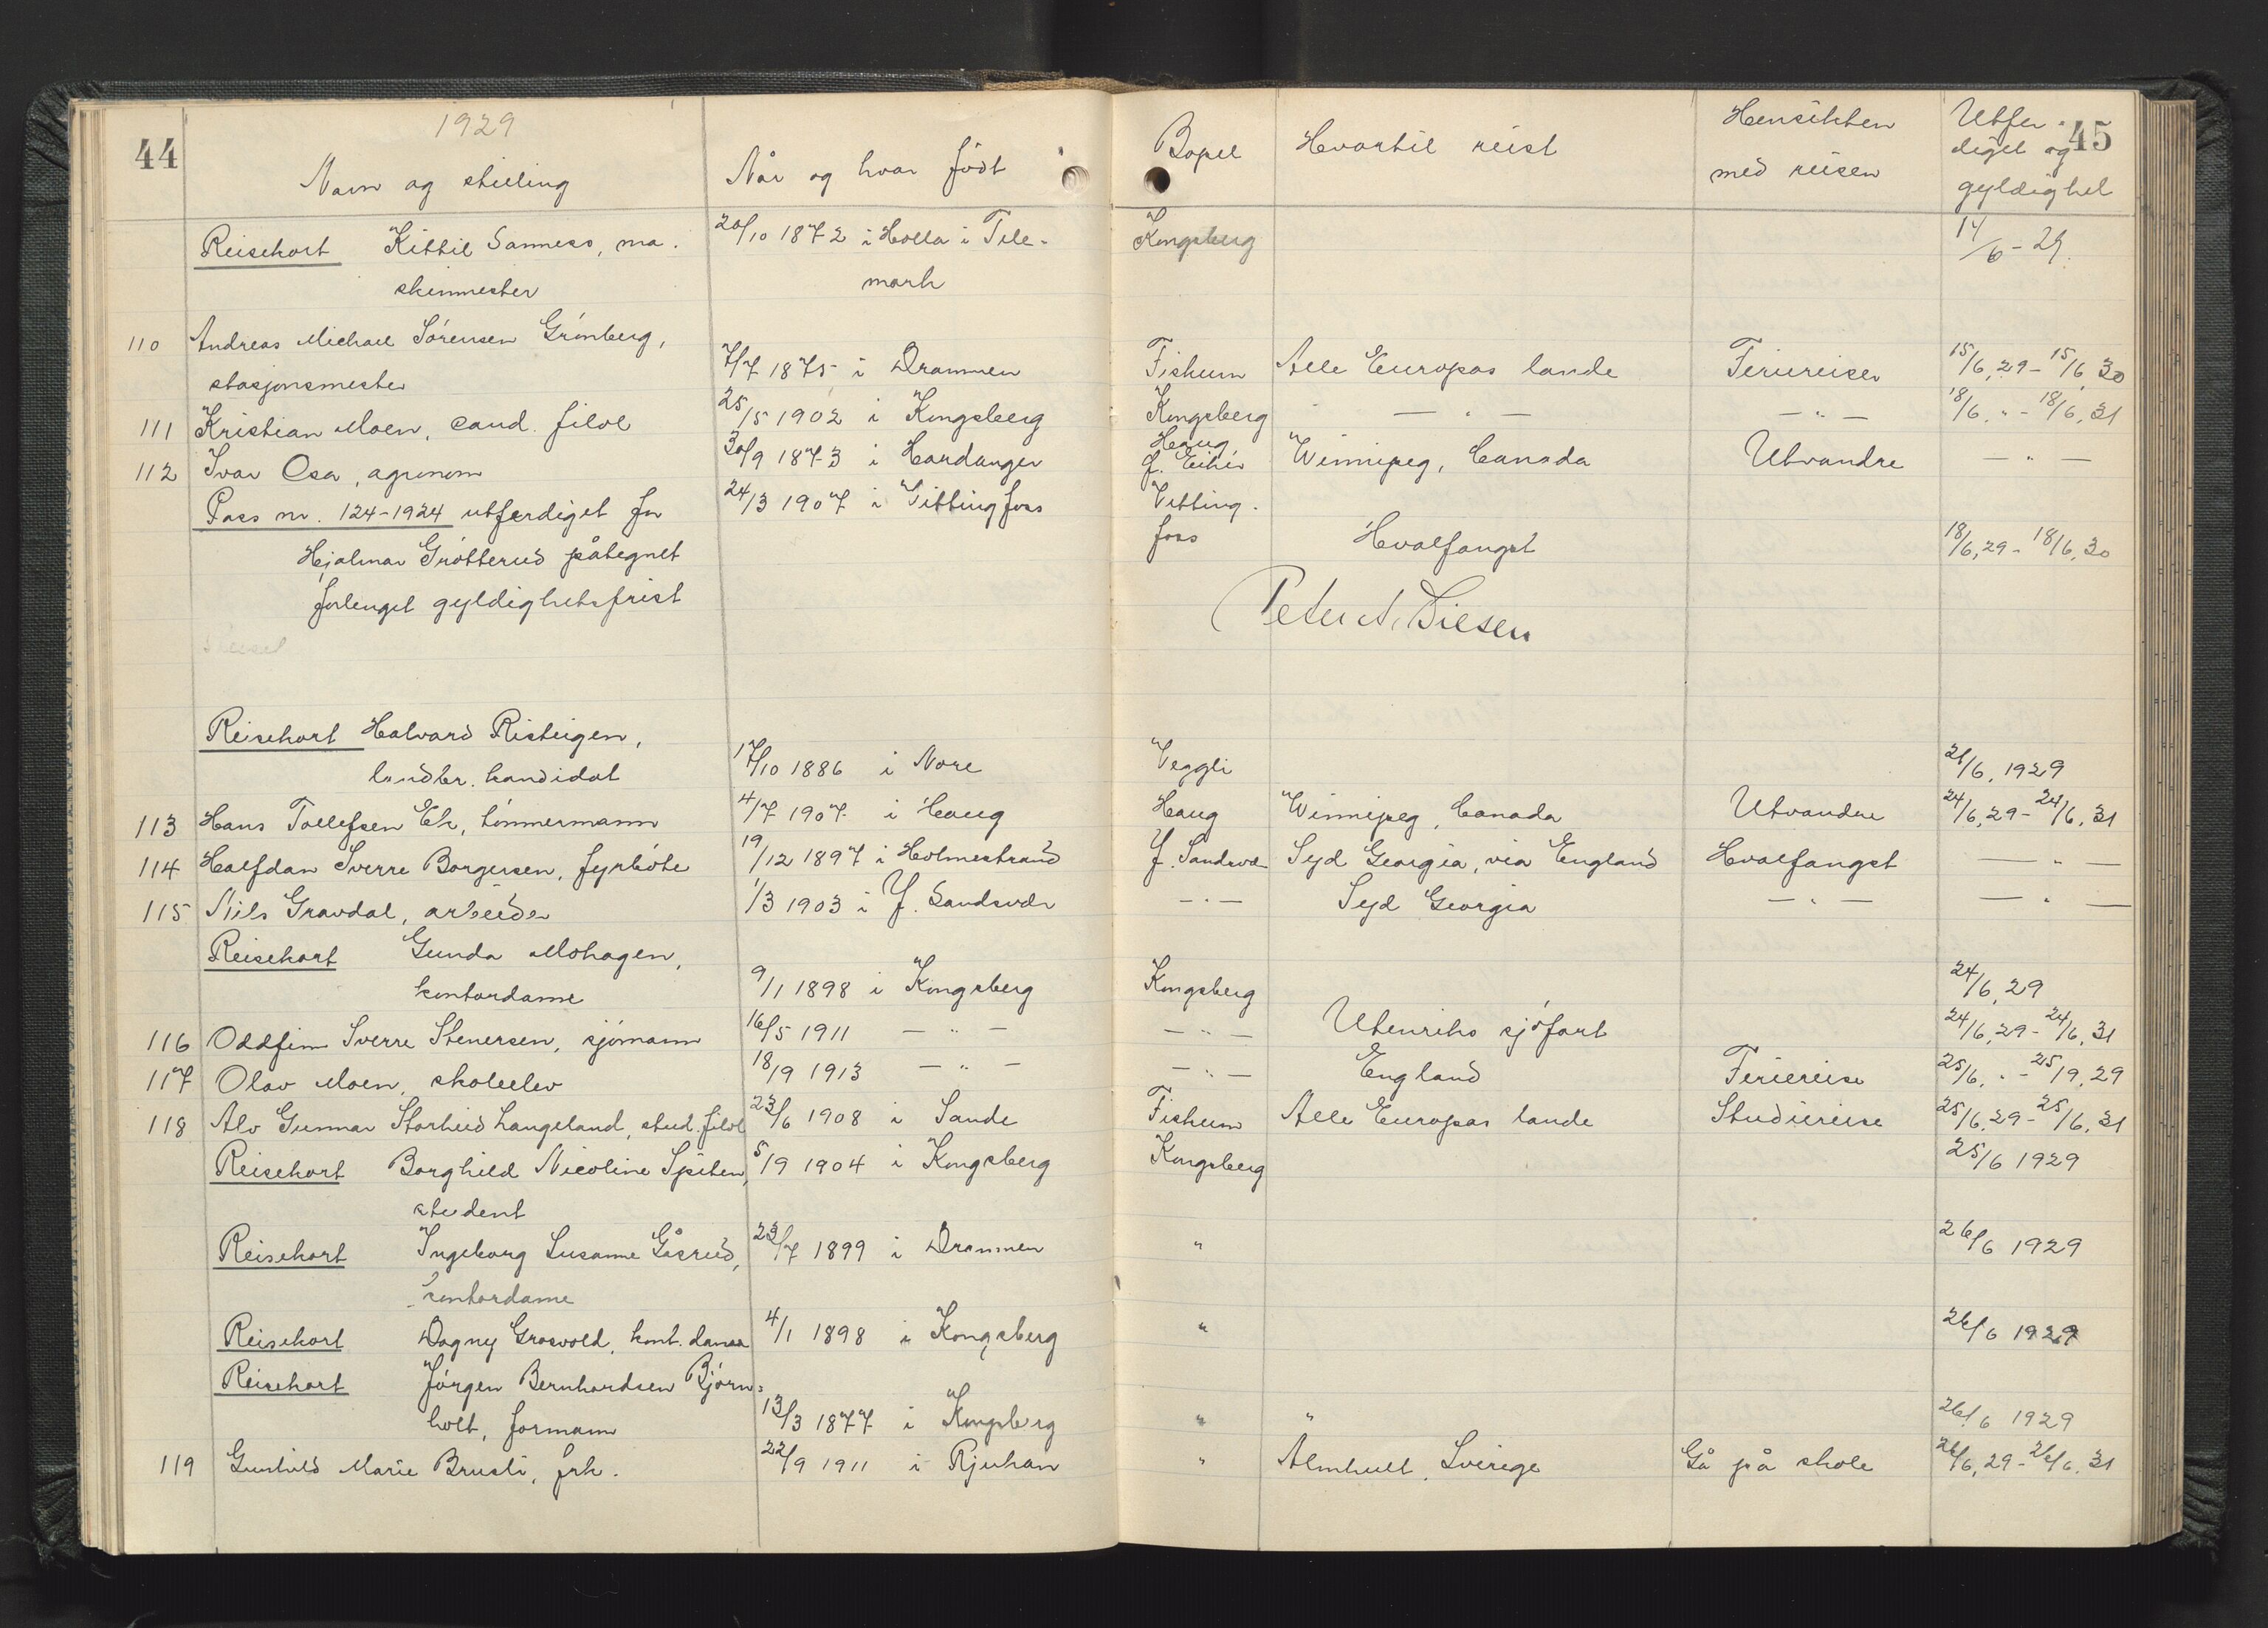 44
1929
Navn og stilling
Når og hvar født
Bopel
Hvartil reist
Hensikten
med reisen
Utfer-
diget og
gyldighet
45
Reisekort Kittil Sanness, ma-
skinmester
20/10 1872 i Holla i Tele-
mark
Kongsberg
14/6-29.
110 Andreas Michael Sørensen Grønberg,
stasjonsmester
7/7 1875 i Drammen
Fiskum Alle Europas lande Feriereiser 15/6, 29-15/6, 30
111 Kristian Moen, cand. filol 25/5 1902 i Kongsberg Kongsberg — " — — " — 18/6. " - 18/6, 31
112 Ivar Osa, agronom 30/9 1873 i Hardanger Haug
Ø. Eiker Winnipeg, Canada Utvandre — " —
Pass nr. 124-1924 utferdiget for 24/3 1907 i Vittingfoss Vitting-
foss
Hjalmar Grøtterud påtegnet Hvalfangst 18/6, 29-18/6, 30
forlenget gyldighetsfrist
Peter A.
Reisekort Halvard Risteigen,
landbr. kandidat 17/10 1886 i Nore Veggli 21/6, 1929
113 Hans Tollefsen Ek, tømmermann 4/7 1907 i Haug Haug Winnipeg, Canada Utvandre 24/6, 29-24/6, 31
114 Halfdan Sverre Borgersen, fyrbøte 19/12 1897 i Holmestrand Y. Sandsvær Syd Georgia, via England Hvalfangst — " —
115 Nils Gravdal, arbeider 1/3 1903 i Y. Sandsvær — " — Syd Georgia — " — — " —
Reisekort Gunda Mohagen,
kontordame 9/1 1898 i Kongsberg Kongsberg 24/6, 29
116 Oddfinn Sverre Stenersen, sjømann 16/5 1911 — " — — " — Utenriks sjøfart 24/6, 29-24/6, 31
117 Olav Moen, skoleelev 18/9 1913 — " — — " — England Feriereise 25/6. " - 25/9, 29
118 Alv Gunnar Storhud Langeland, stud. filol 23/6 1908 i Sande Fiskum Alle Europas lande Studiereise 25/6, 29-25/6, 31
Reisekort Borghild Nicoline Spiten, 5/9 1904 i Kongsberg Kongsberg 25/6 1929
student
Reisekort Ingeborg Susanne Gåsrud, 23/7 1899 i Drammen " 26/6 1929
kontordame
Reisekort Dagny Grosvold, kont. dame 4/1 1898 i Kongsberg " 26/6 1929
Reisekort Jørgen Bernhardsen Bjørn-
holt, formann 13/3 1877 i Kongsberg " " 26/6 1929
119 Gunhild Marie Brusli, frk. 22/9 1911 i Rjukan " Almhult, Sverige Gå på skole 26/6, 29-26/6, 31